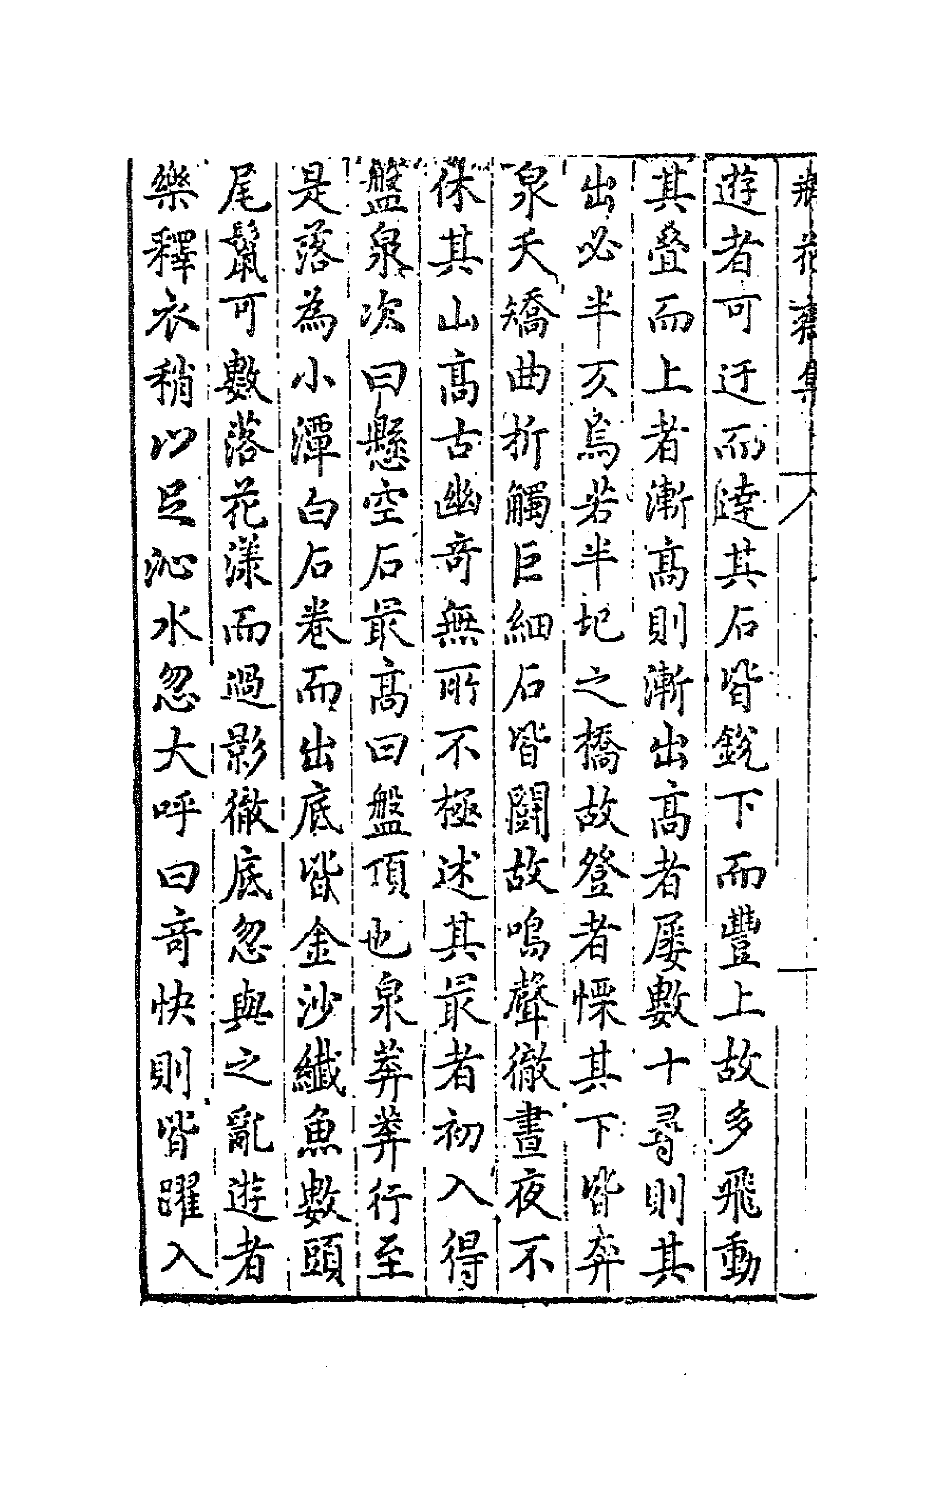 瓶花齋集
遊者可迂而達其石皆銳下而豐上故多飛動
其叠而上者漸高則漸出高者屢數十尋則其
出必半仄焉若半圮之橋故登者慄其下皆奔
泉夭矯曲折觸巨細石皆鬪故鳴聲徹晝夜不
休其山高古幽奇無所不極述其最者初入得
盤泉次曰懸空石最高曰盤頂也泉莽莽行至
是落為小潭白石卷而出底皆金沙纖魚數頭
尾鬣可數落花漾而過影徹底忽與之亂遊者
樂釋衣稍以足沁水忽大呼曰奇快則皆躍入